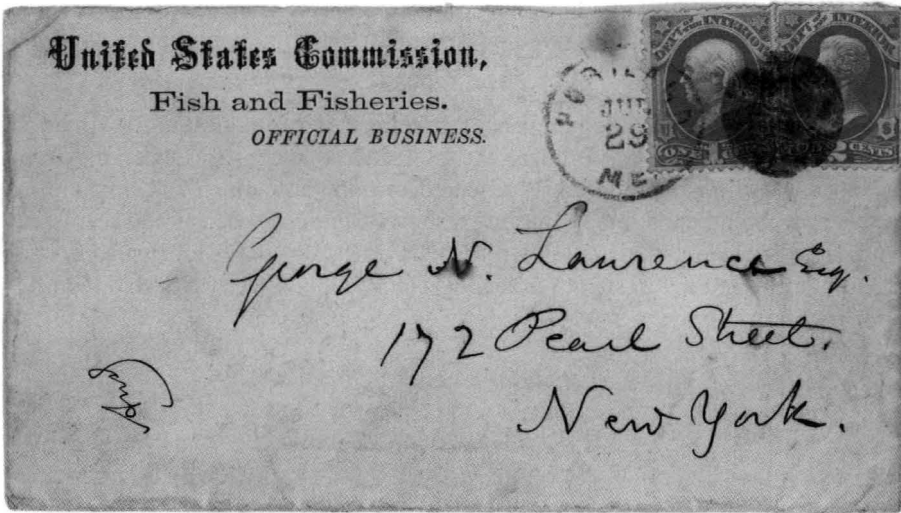 United States Commission,
Fish and Fisheries.
OFFICIAL BUSINESS.
PORTLAND
JUL
29
ME
DEPT OF INTERIOR
U
ONE
DEPT OF INTERIOR
S
2 CENTS
George N. Lawrence Esq.
172 Pearl Street.
New York.